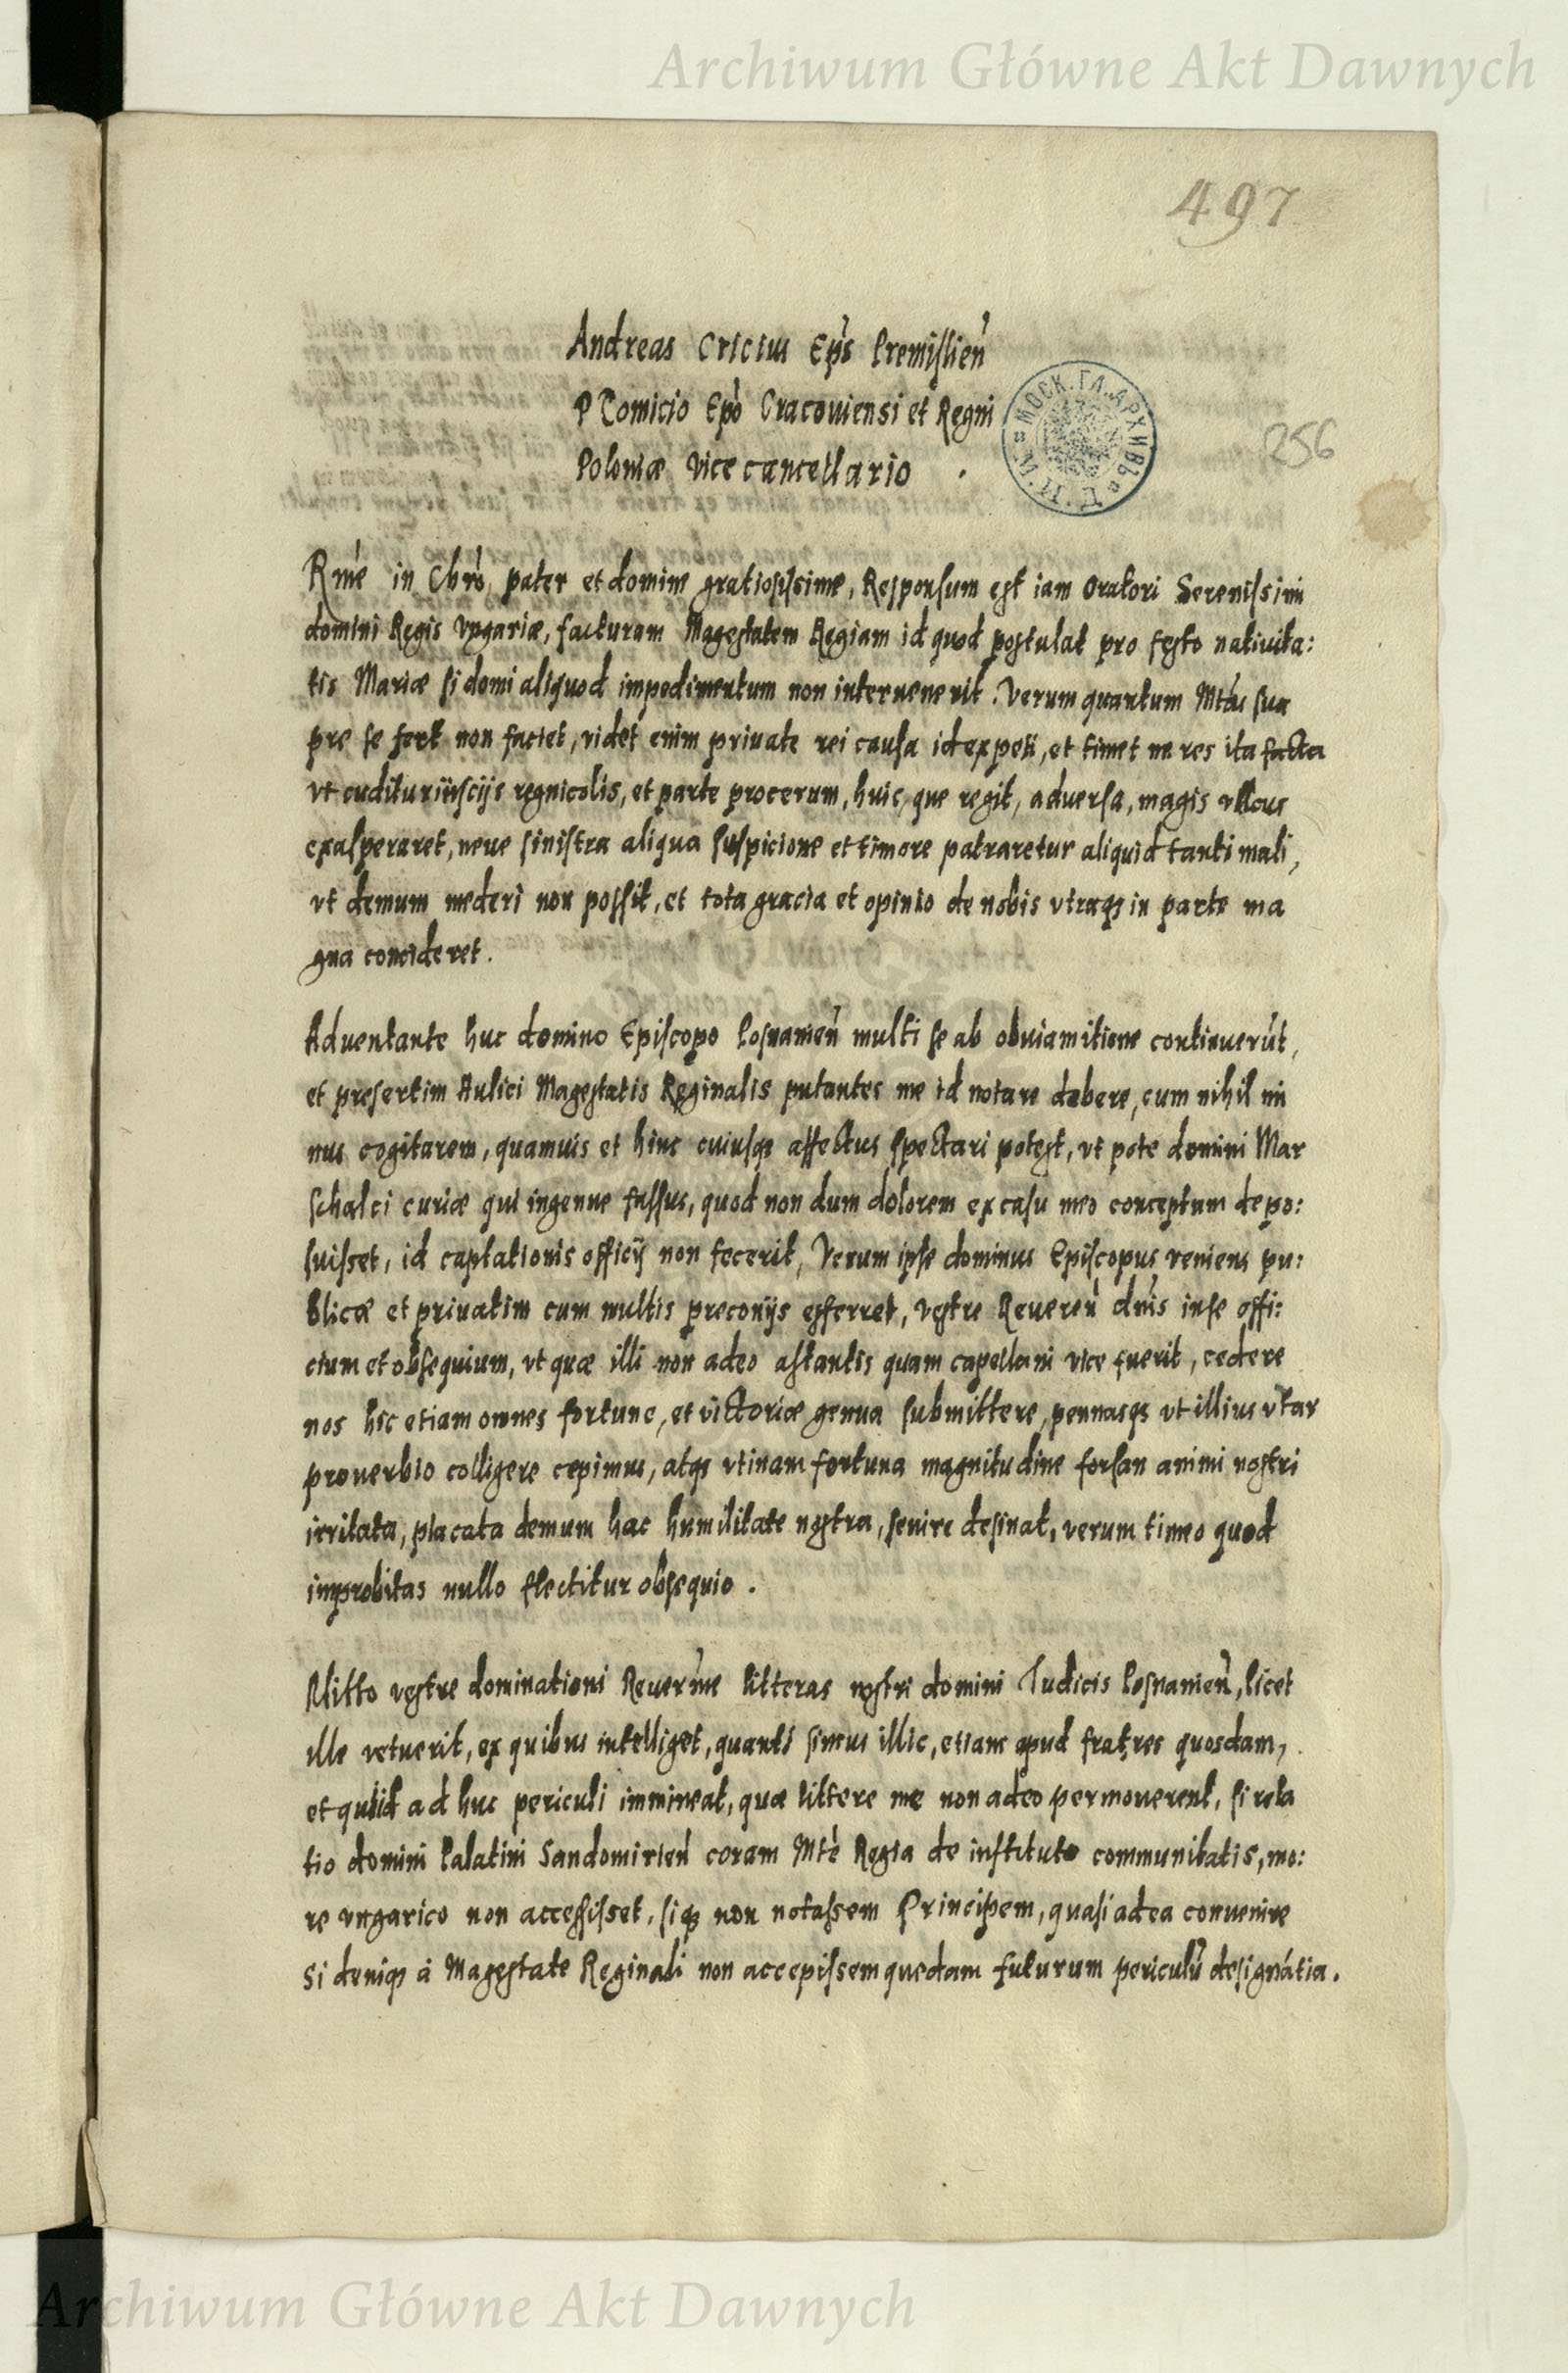 Archiwum Główne Akt Dawnych
497
Andreas Cricius Ep̃s Premislien̄
P Tomicio Ep̃o Cracoviensi et Regni
Poloniæ Vicecancellario .
МОСК. ГЛ. АРХИВЪ
256
Rm̄e in Chrō pater et domine gratiosissime, Responsum est iam Oratori Serenissimi
domini Regis Vngariæ, facturam Magestatem Regiam id quod postulat pro festo nativita:
tis Mariæ si domi aliquod impedimentum non intervenerit. Verum quantum Mtãs sua
pre se fert non faciet, videt enim private rei causa id expeti, et timet ne res ita facta
vt cuditur insciis regnicolis, et parte procerum, huic, que regit, adversa, magis
exasperaret, neve sinistra aliqua suspicione et timore patraretur aliquid tanti mali,
vt demum mederi non possit, et tota gracia et opinio de nobis vtraqȝ in parte ma
gna concideret.
Adventante huc domino Episcopo Posnanien̄ multi se ab obviamitione continuerūt,
et presertim Aulici Magestatis Reginalis putantes me id notare debere, cum nihil mi
nus cogitarem, quamvis et hinc cuiusqȝ affectus spectari potest, vt pote domini Mar
schalci curiæ qui ingenue fassus, quod non dum dolorem ex casu meo conceptum depo:
suisset, id captationis officij non fecerit, Verum ipse dominus Episcopus veniens pu:
blicæ et privatim cum multis preconijs efferret, vestre Reveren̄ dn̄is in se offi:
cium et obsequium, vt quæ illi non adeo astantis quam capellani vice fuerit, cedere
nos hic etiam omnes fortune, et victoriæ genua submittere, pennasqȝ vt illius vtar
proverbio colligere cepimus, atqȝ vtinam fortuna magnitudine forsan animi nostri
irritata, placata demum hac humilitate nostra, sevire desinat, verum timeo quod
improbitas nullo flectitur obsequio .
Mitto vestre dominationi Reverm̄e litteras nostri domini Iudicis Posnanien̄, licet
ille vetuerit, ex quibus intelliget, quanti simus illic, etiam apud fratres quosdam,
et quid ad huc periculi immineat, quæ littere me non adeo permoverent, si rela
tio domini Palatini Sandomirien̄ coram Mtē Regia de instituto communitatis, mo:
re vngarico non accessisset, siqȝ non notassem Principem, quasi ad ea convenire
si deniqȝ à Magestate Reginali non accepissem quedam futurum periculū designātia.
Archiwum Główne Akt Dawnych